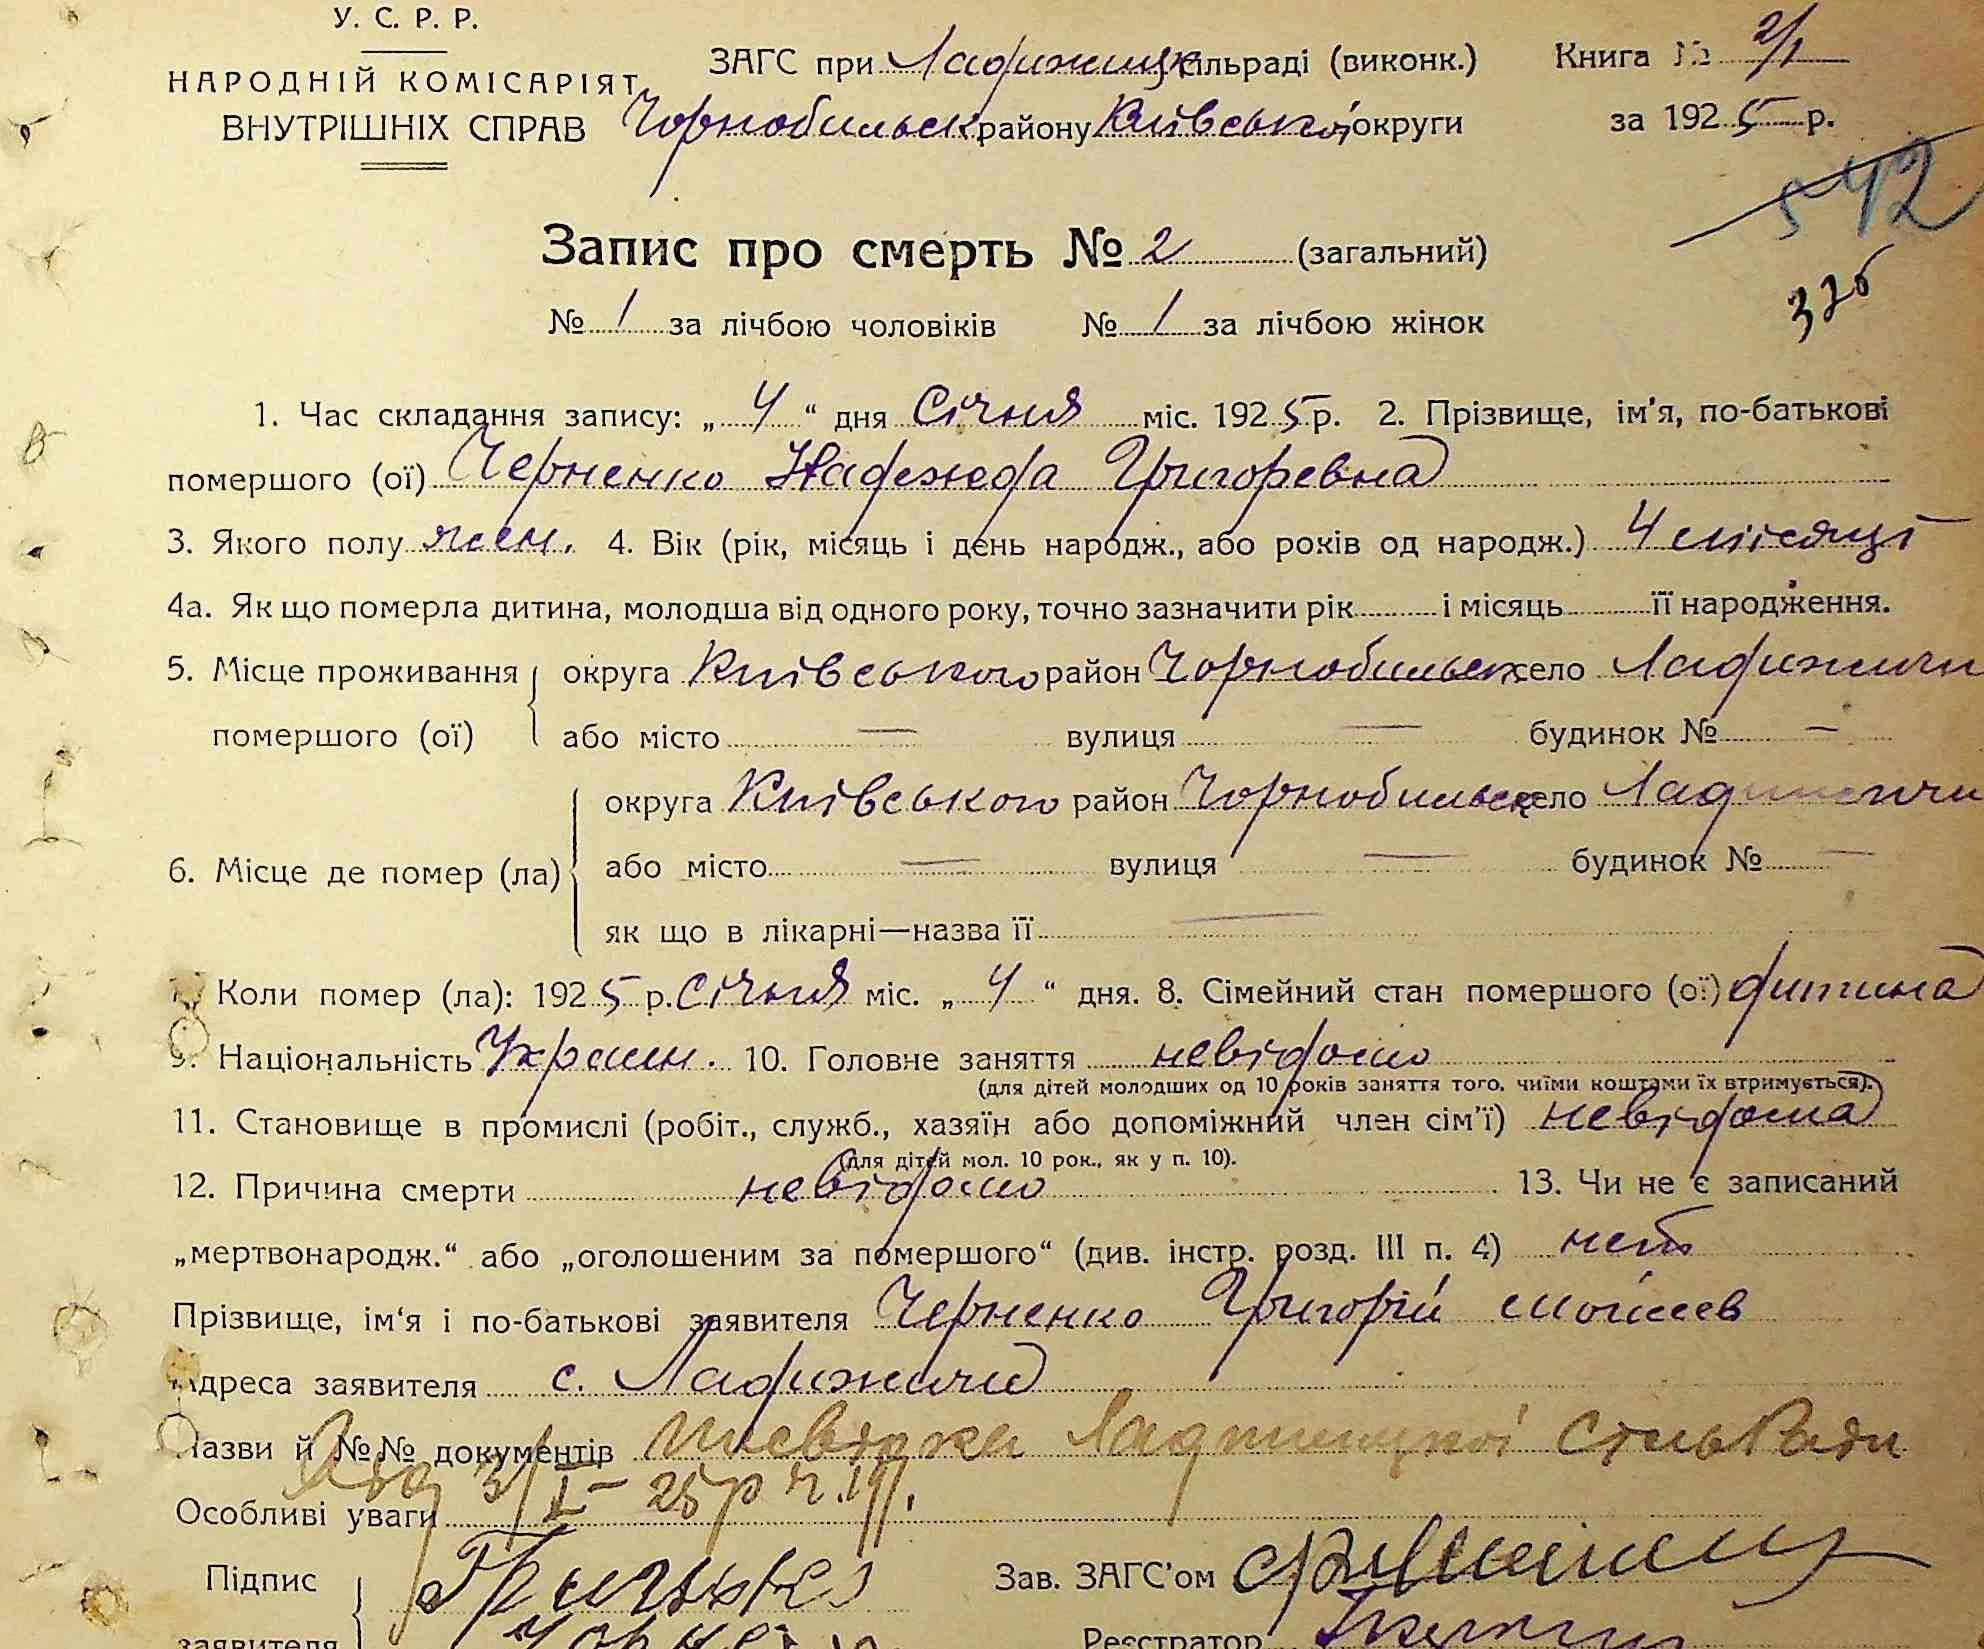 У. С. Р. Р.
НАРОДНІЙ КОМІСАРІЯТ
ВНУТРІШНІХ СПРАВ
ЗАГС при Ладижицьк сільраді (виконк.)
Чорнобильськ району Київської округи
Книга № 2/1
за 1925 р.
542
326
Запис про смерть № 2 (загальний)
№ 1 за лічбою чоловіків № 1 за лічбою жінок
1. Час складання запису: „4“ дня Січня міс. 1925 р. 2. Прізвище, ім'я, по-батькові
помершого (ої) Черненко Надежда Григоревна
3. Якого полу жен. 4. Вік (рік, місяць і день народж., або років од народж.) 4 місяці
4а. Як що померла дитина, молодша від одного року, точно зазначити рік і місяць її народження.
5. Місце проживання округа Київського район Чорнобильск село Ладижичи
помершого (ої) або місто — вулиця — будинок № —
округа Київського район Чорнобильск село Ладижичи
6. Місце де помер (ла) або місто — вулиця — будинок № —
як що в лікарні—назва її —
Коли помер (ла): 1925 р. Січня міс. „4“ дня. 8. Сімейний стан помершого (ої) дитина
9. Національність Украин. 10. Головне заняття невідомо
(для дітей молодших од 10 років заняття того, чиїми коштами їх втримується).
11. Становище в промислі (робіт., служб., хазяїн або допоміжний член сім'ї) невідома
(для дітей мол. 10 рок., як у п. 10).
12. Причина смерти невідомо 13. Чи не є записаний
„мертвонародж.“ або „оголошеним за помершого“ (див. інстр. розд. III п. 4) нет
Прізвище, ім'я і по-батькові заявителя Черненко Григорій Моісеев
Адреса заявителя с. Ладижичи
Назви й №№ документів Ладижицкої СільРади
3/I - 25р ч. 19
Особливі уваги
Підпис Зав. ЗАГС'ом
заявителя Реєстратор